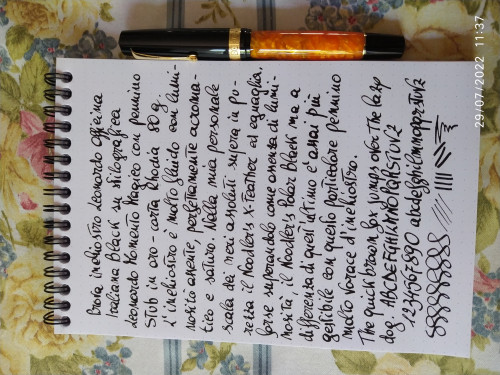 Prova inchiostro Leonardo Officina
Italiana Black su stilografica
Leonardo Momento Magico con pennino
Stub in oro - carta Rhodia 80 g.
L'inchiostro è molto fluido con lumi-
nosità assente, perfettamente acroma-
tico e saturo. Nella mia personale
scala dei neri assoluti supera in pu-
rezza il Noodlers X-Feather ed eguaglia,
forse superandolo come assenza di lumi-
nosità il Noodlers Polar Black ma a
differenza di quest'ultimo è assai più
gestibile con questo particolare pennino
molto vorace d'inchiostro.
The quick brown fox jumps over the lazy
dog. ABCDEFGHILMNOPQRSTUVZ
1234567890 abcdefghilmnopqrstuvz
29/07/2022 11:37